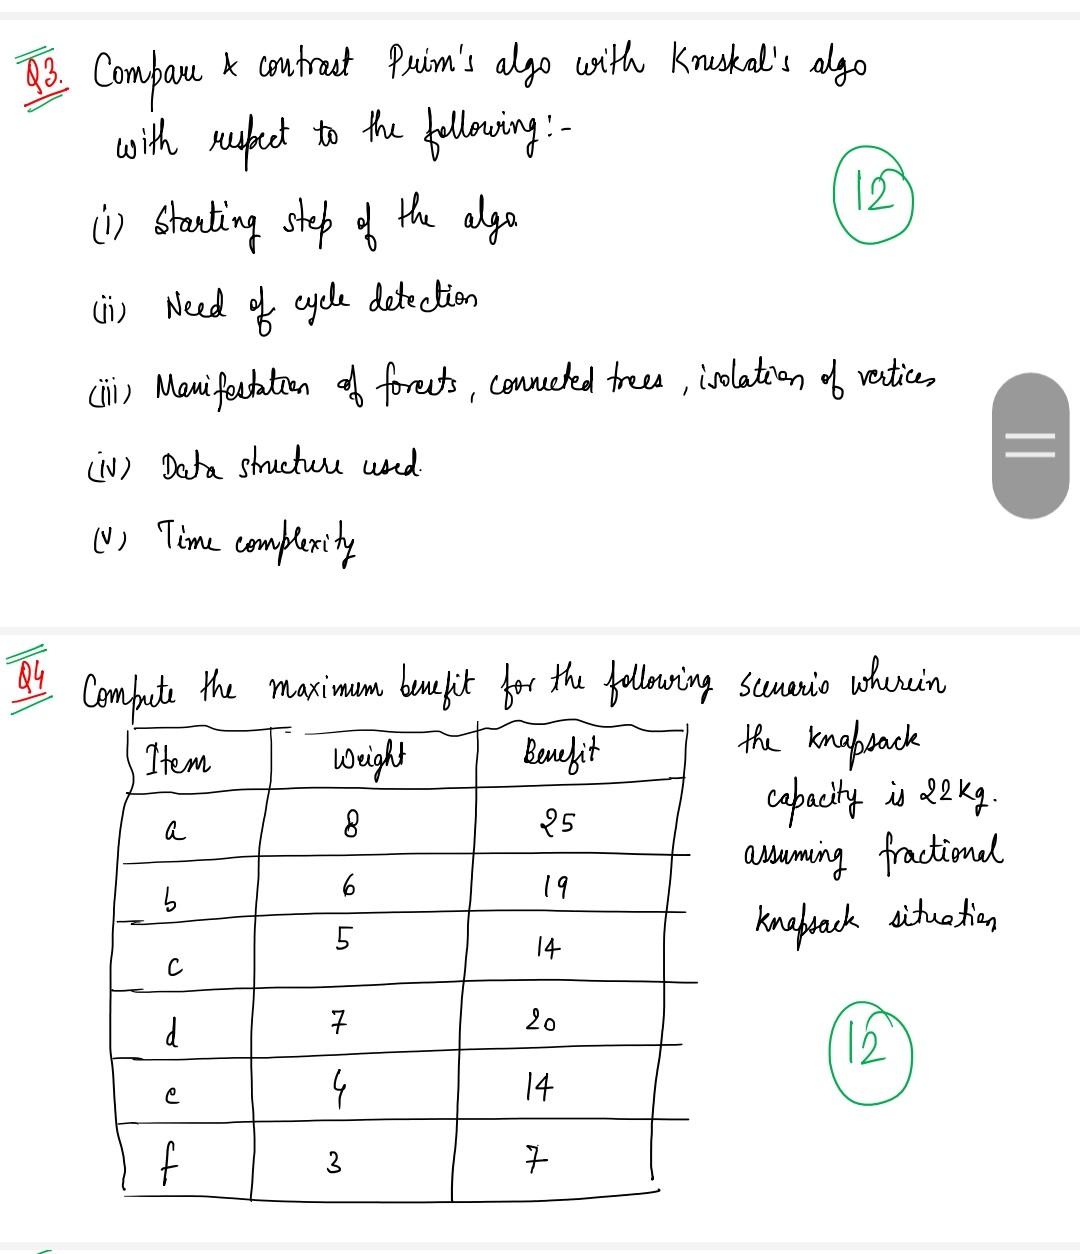 Q3. Compare & contrast Prim's algo with Kruskal's algo
with respect to the following:-
12
(i) Starting step of the algo.
(ii) Need of cycle detection
(iii) Manifestation of forests, connected trees, isolation of vertices
(iv) Data structure used.
(v) Time complexity
Q4 Compute the maximum benefit for the following scenario wherein
the knapsack
capacity is 22kg.
assuming fractional
knapsack situation
12
Item Weight Benefit
a 8 25
b 6 19
c 5 14
d 7 20
e 4 14
f 3 7